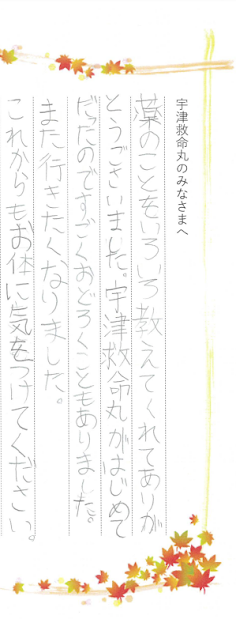 宇津救命丸のみなさまへ
薬のことをいろいろ教えてくれてありが
とうございました。宇津救命丸がはじめて
だったのですごくおどろくこともありました。
また行きたくなりました。
これからもお体に気をつけてください。